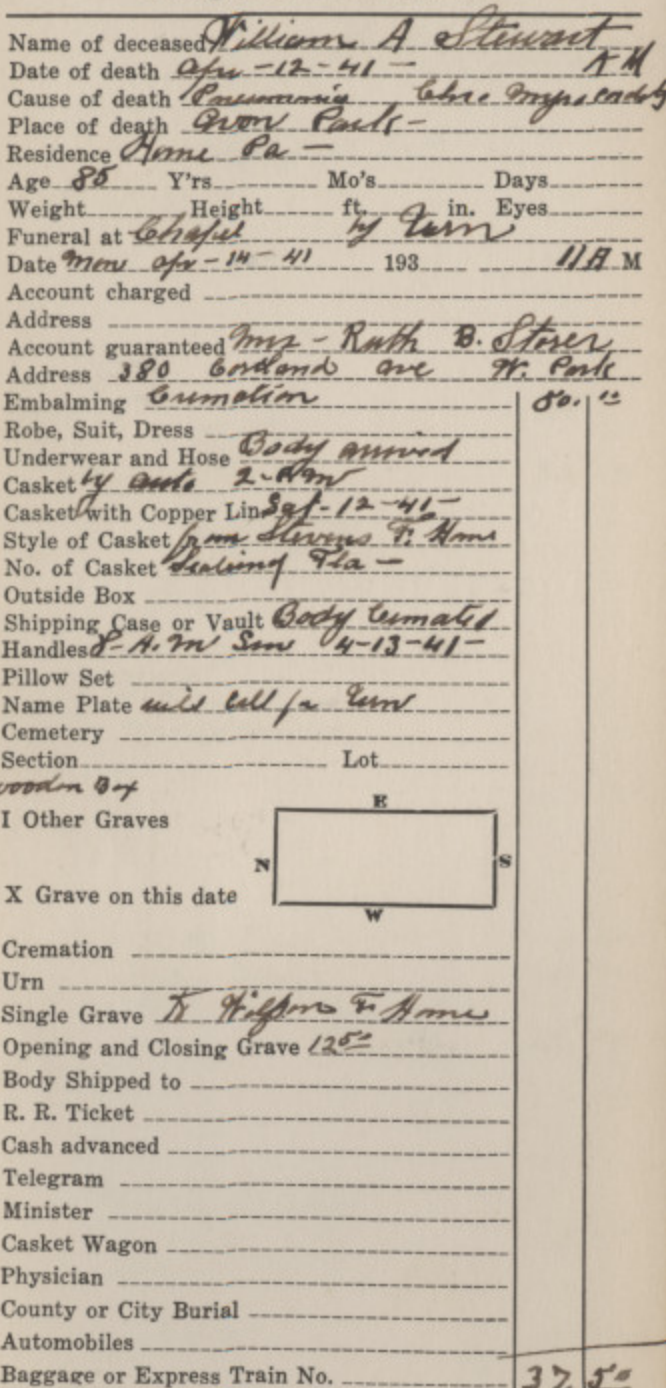 Name of deceased William A Stewart
Date of death Apr-12-41- A M
Cause of death Pneumonia Chro Myocardity
Place of death Avon Park-
Residence Home Pa-
Age 85 Y'rs Mo's Days
Weight Height ft. in. Eyes
Funeral at Chapel by Turn
Date Mon Apr-14-41 193 11 A M
Account charged
Address
Account guaranteed Mrs- Ruth B. Storer
Address 380 Cortland ave W. Park
Embalming Cremation 50.00
Robe, Suit, Dress
Underwear and Hose Body arrived
Casket by auto 2-
Casket with Copper Lin Sat-12-41-
Style of Casket from Stevens F. Home
No. of Casket Sebring Fla-
Outside Box
Shipping Case or Vault Body Cremated
Handles 8-A.M Sun 4-13-41-
Pillow Set
Name Plate will call for Urn
Cemetery
Section Lot
wooden Box
E
I Other Graves
N S
X Grave on this date
W
Cremation
Urn
Single Grave F. Home
Opening and Closing Grave 12 50
Body Shipped to
R. R. Ticket
Cash advanced
Telegram
Minister
Casket Wagon
Physician
County or City Burial
Automobiles
Baggage or Express Train No. 37 50